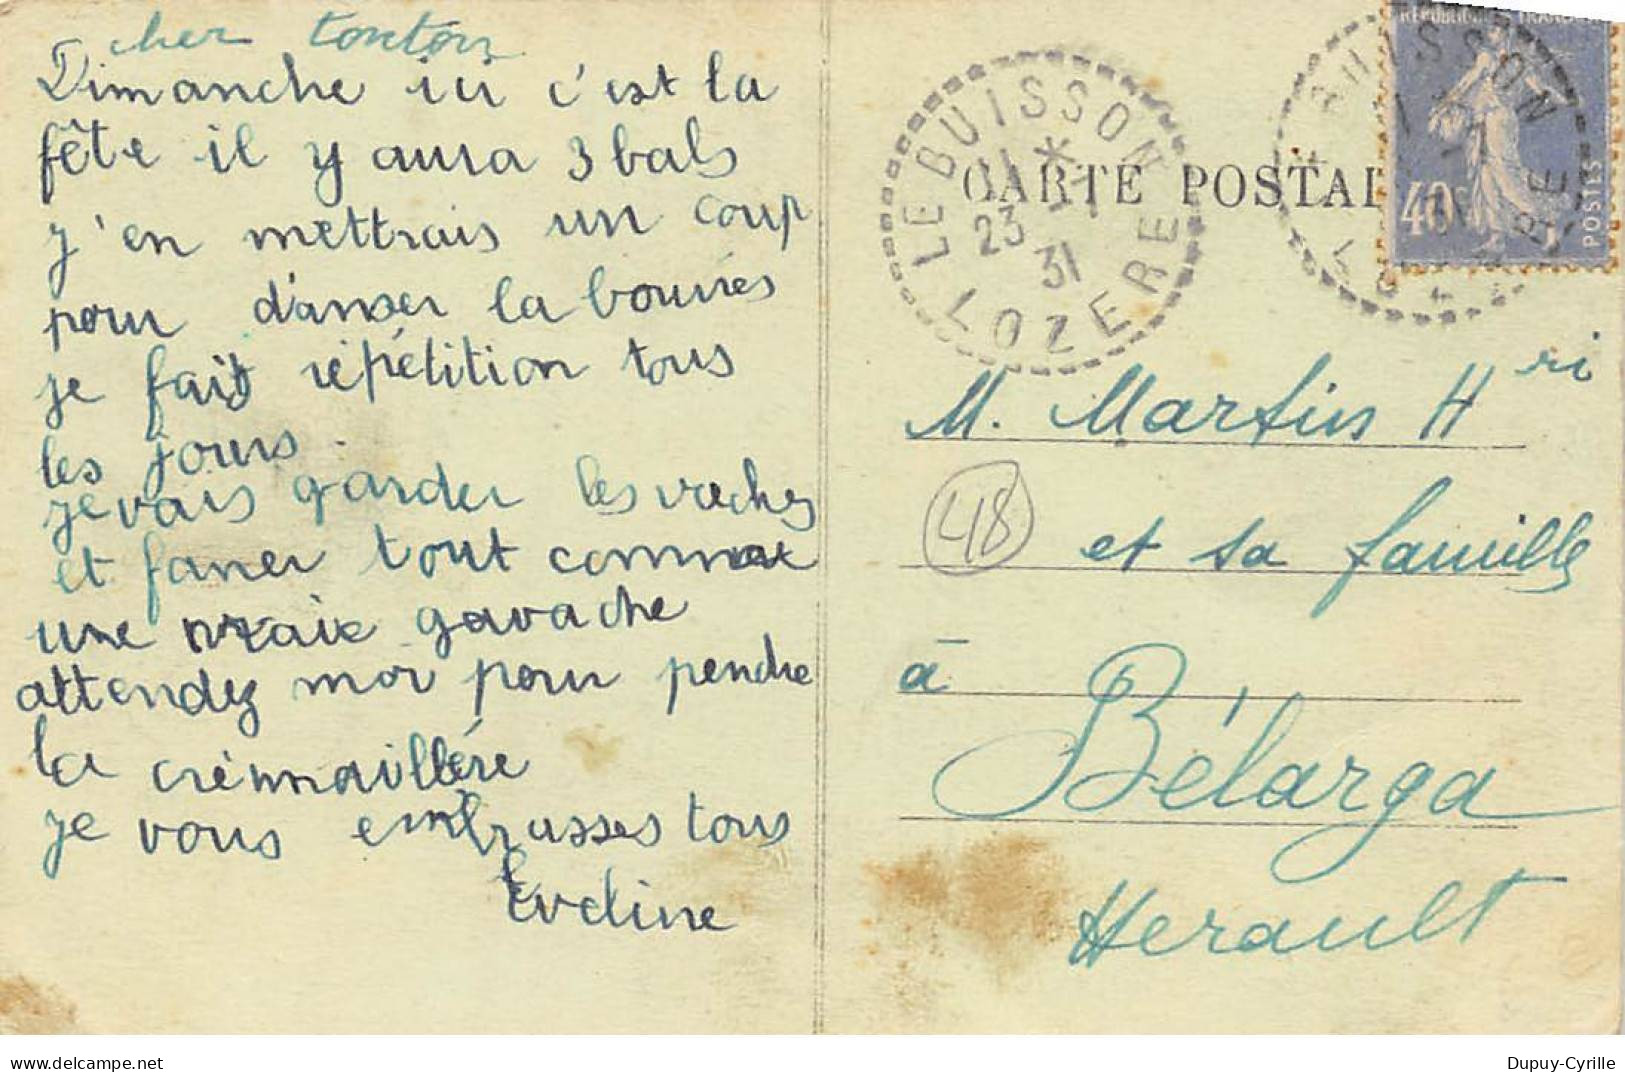 cher tonton
Dimanche ici c'est la
fête il y aura 3 bals
j'en mettrais un coup
pour danser la bourrés
je fait répétition tous
les jours.
je vais garder les vaches
et faner tout comme
une vraie gavache
attendez moi pour pendre
la crémmaillère
je vous embrasses tous
Eveline
LE BUISSON
11 *
23 -7
31
LOZERE
CARTE POSTAL
REPUBLIQUE FRANCAISE
40c
POSTES
BUISSON
M. Martin Hri
48
et sa famille
à
Bélarga
Herault
delcampe.net
Dupuy-Cyrille